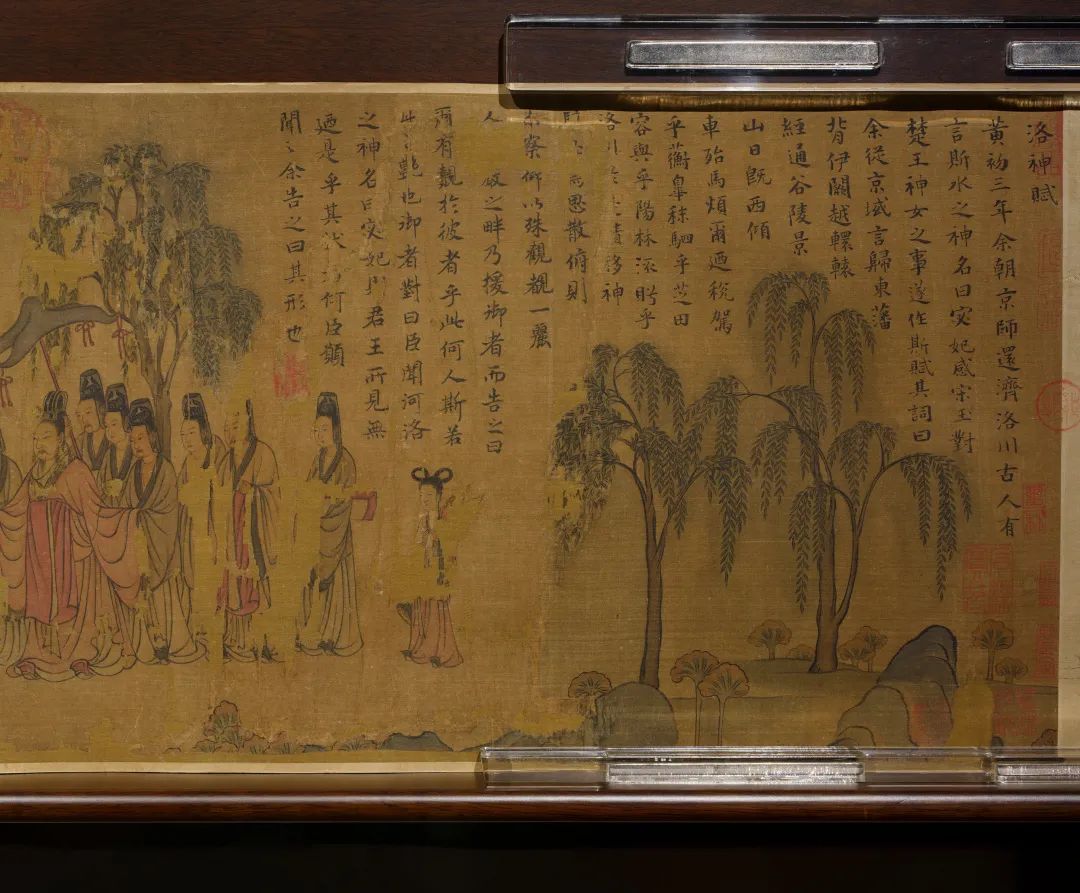 洛神賦
黄初三年余朝京師還濟洛川古人有
言斯水之神名曰宓妃感宋玉對
楚王神女之事遂作斯賦其詞曰
余從京域言歸東藩
背伊闕越轘轅
經通谷陵景
山日旣西傾
車殆馬煩爾迺稅駕
乎蘅皐秣駟乎芝田
容與乎陽林流眄乎
洛川於是精移神
而思散俯則
察仰以殊觀覩一麗
人 之畔乃援御者而告之曰
爾有覿於彼者乎此何人斯若
此之艷也御者對曰臣聞河洛
之神名曰宓妃 君王所見無
迺是乎其狀 何臣願
聞之余告之曰其形也